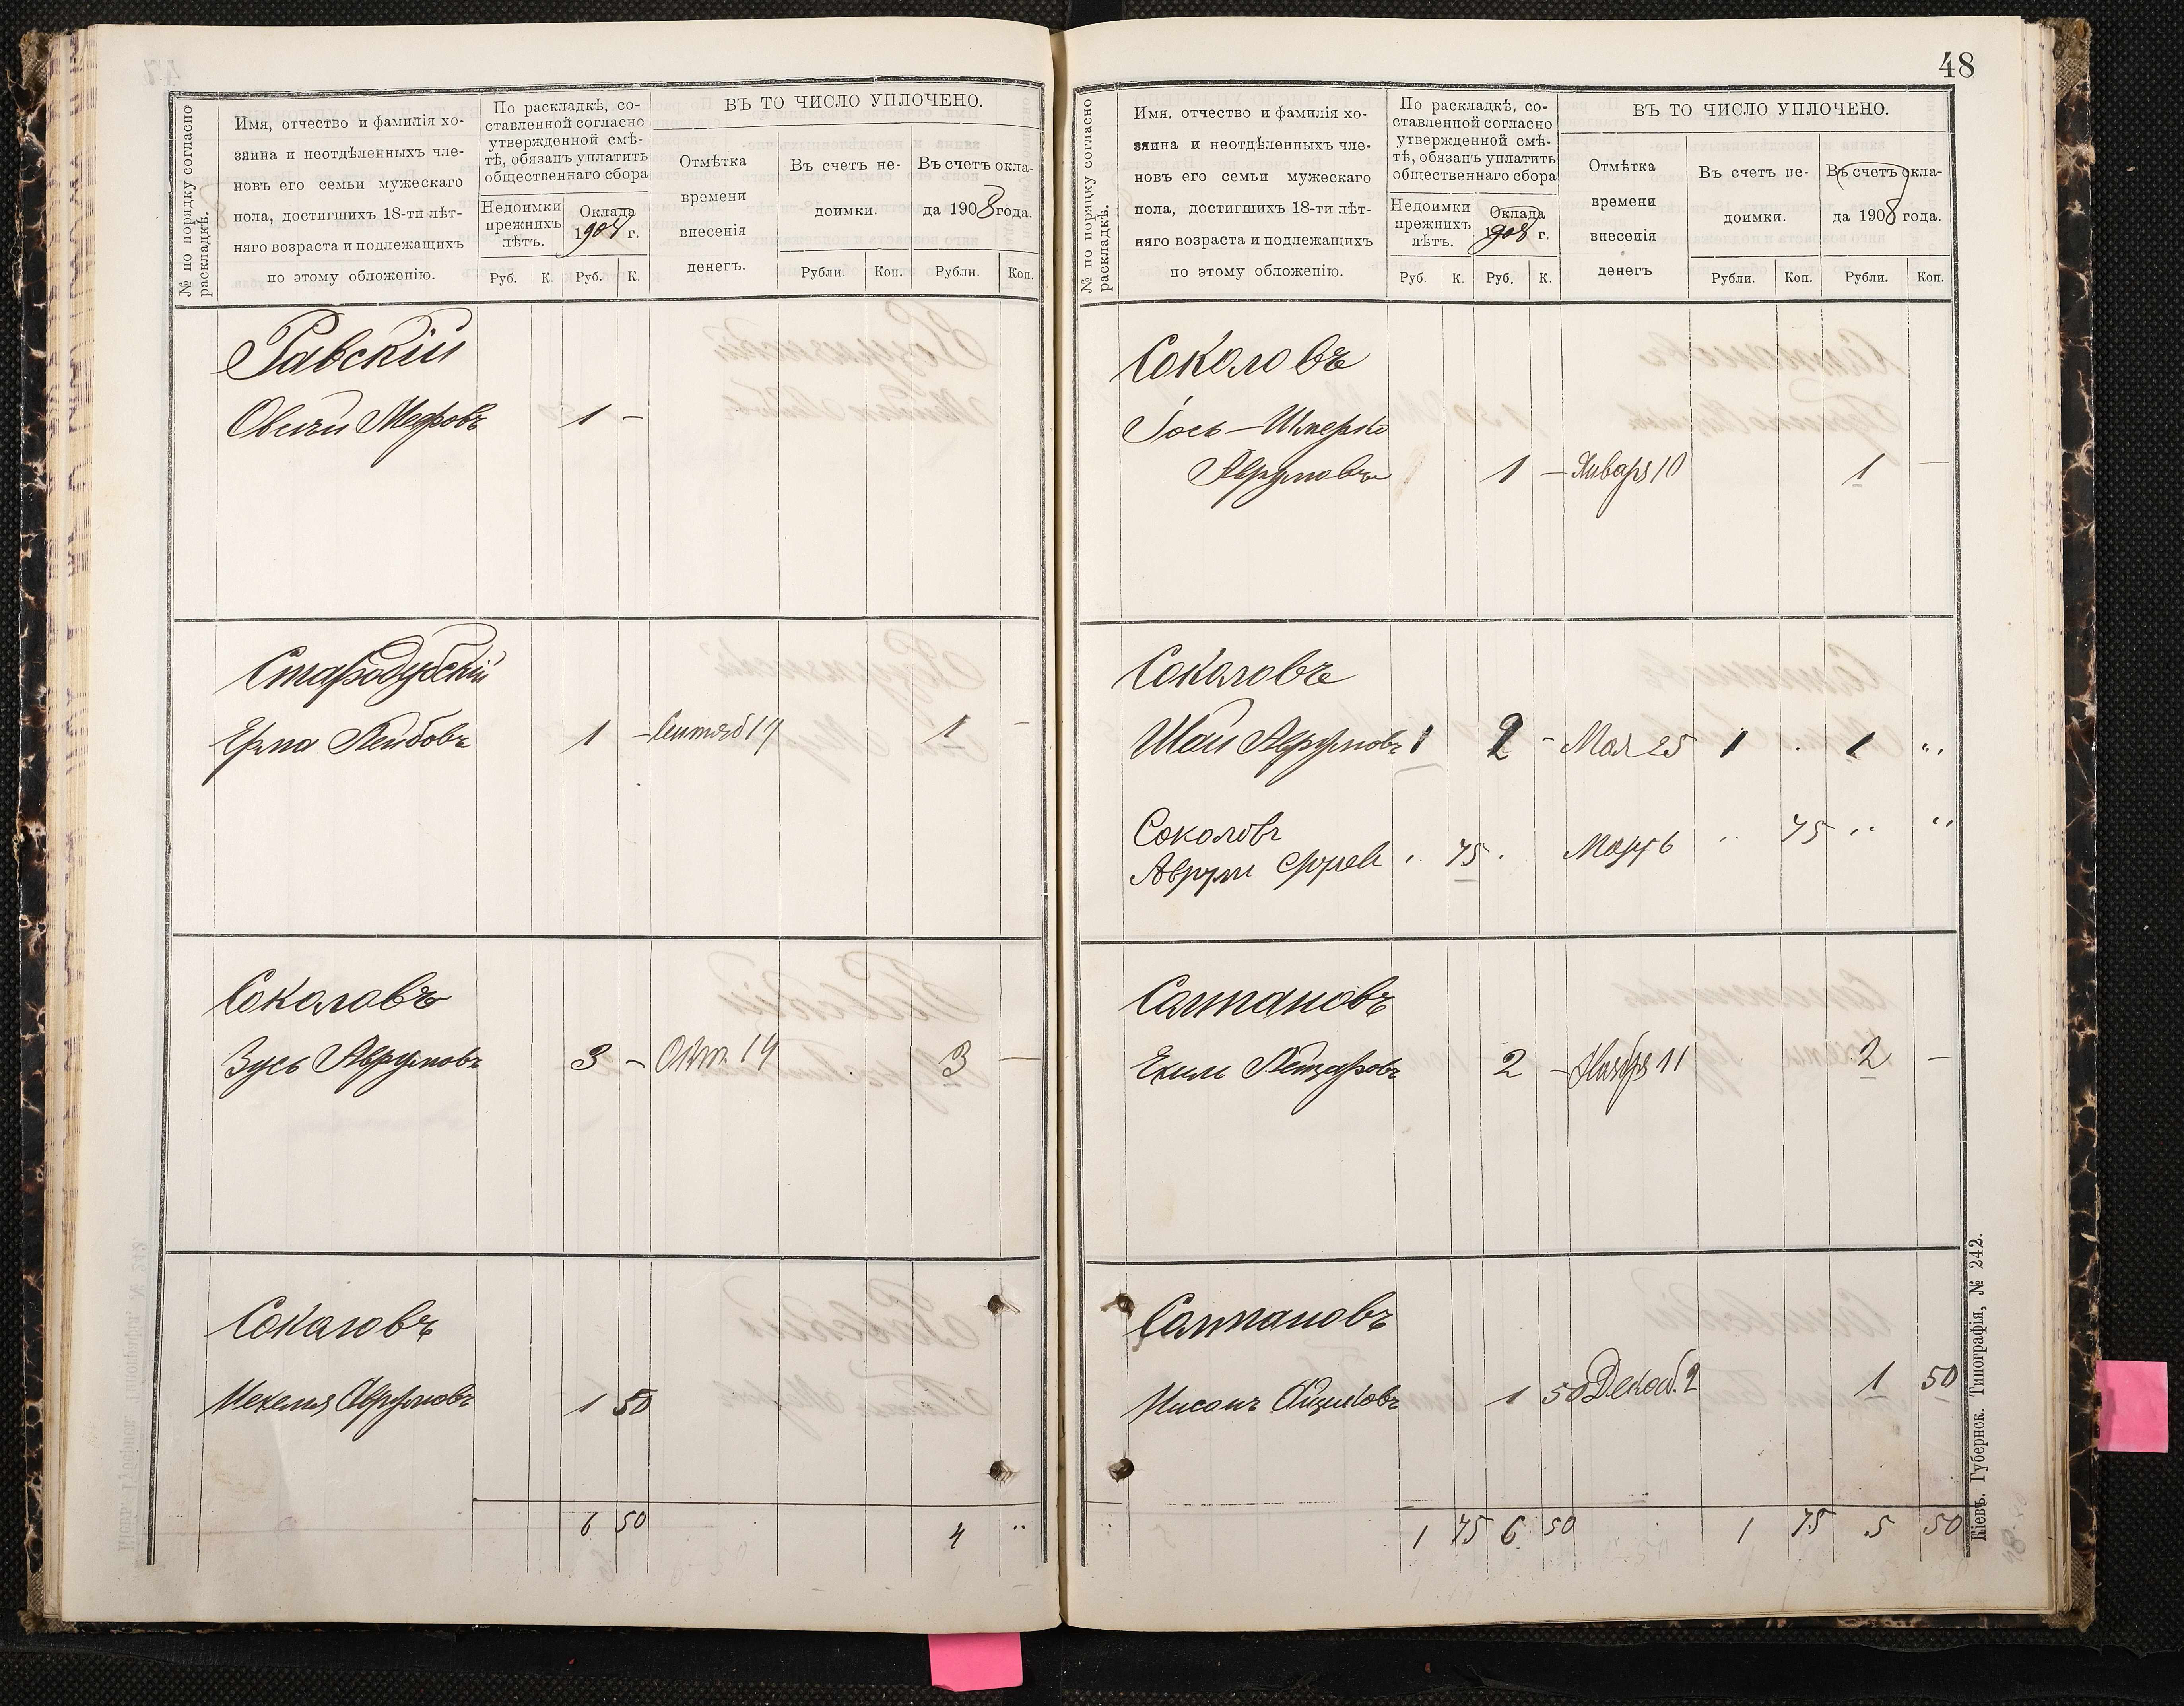 48
№ по порядку согласно
раскладкѣ.
Имя, отчество и фамилія хо-
зяина и неотдѣленныхъ чле-
новъ его семьи мужескаго
пола, достигшихъ 18-ти лѣт-
няго возраста и подлежащихъ
по этому обложенію.
По раскладкѣ, со-
ставленной согласно
утвержденной смѣ-
тѣ, обязанъ уплатить
общественнаго сбора
Недоимки
прежнихъ
лѣтъ.
Оклада
1908 г.
Руб. К. Руб. К.
ВЪ ТО ЧИСЛО УПЛОЧЕНО.
Отмѣтка
времени
внесенія
денегъ.
Въ счетъ не-
доимки.
Въ счетъ окла-
да 1908 года.
Рубли. Коп. Рубли. Коп.
Равскій
1 —
Стародубскій
Лейбовъ 1 — Сентяб 17 1 —
Соколовъ
Зусь Аврумовъ 3 — Октл. 14 3 —
Соколовъ
Мехеля Аврумовъ 1 50
6 50 4 "
№ по порядку согласно
раскладкѣ.
Имя, отчество и фамилія хо-
зяина и неотдѣленныхъ чле-
новъ его семьи мужескаго
пола, достигшихъ 18-ти лѣт-
няго возраста и подлежащихъ
по этому обложенію.
По раскладкѣ, со-
ставленной согласно
утвержденной смѣ-
тѣ, обязанъ уплатить
общественнаго сбора
Недоимки
прежнихъ
лѣтъ.
Оклада
1908 г.
Руб. К. Руб. К.
ВЪ ТО ЧИСЛО УПЛОЧЕНО.
Отмѣтка
времени
внесенія
денегъ
Въ счетъ не-
доимки.
Въ счетъ окла-
да 1908 года.
Рубли. Коп. Рубли. Коп.
Соколовъ
Іось-Шмерко
Аврумовъ 1 — Января 10 1 —
Соколовъ
Шая Аврумовъ 1 2 - Мая 25 1 . 1 "
Соколовъ
Аврумъ " 75 . Март 6 " 75 " "
Салтановъ
Ехиль Лейзеровъ 2 — Ноября 11 2 —
Салтановъ
Нисонъ Айзиковъ 1 50 Декаб. 2 1 50
1 75 6 50 1 75 5 50
Кіевъ. Губернск. Типографія, № 242.